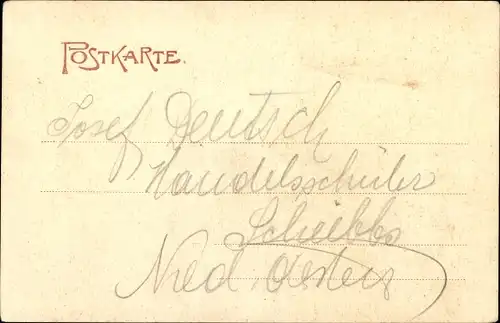 POSTKARTE.
Josef Deutsch
Handelsschüler
Scheibbs
Nied. Österr